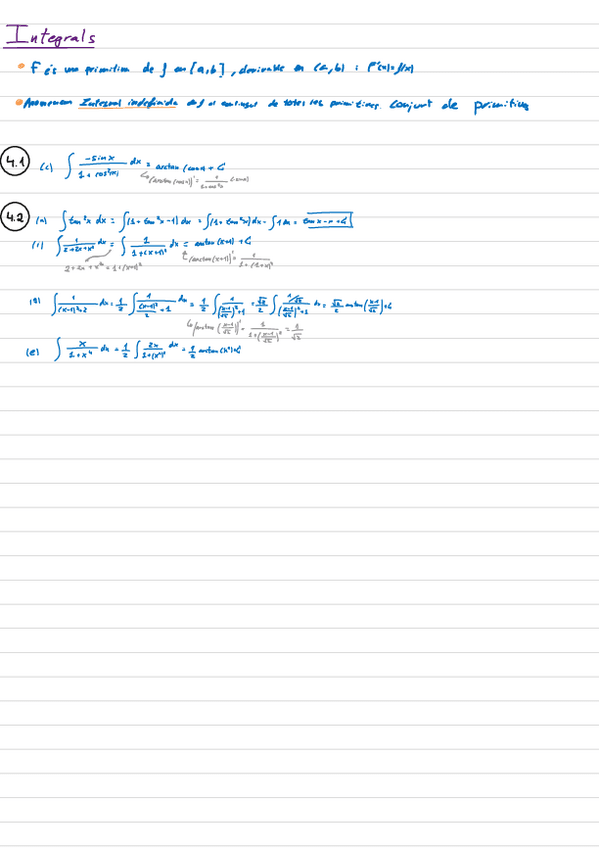 Integrals
• F és una primitiva de f en [a,b], derivable en (a,b) : F'(x)=f(x)
• Anomenem Integral indefinida de f al conjunt de totes les primitives. Conjunt de primitives
4.1 (c) ∫ -sin x / (1 + cos²(x)) dx = arctan (cos x) + C
↳ (arctan (cos x))' = 1/(1+cos²x) (-sin x)
4.2 (a) ∫ tan²x dx = ∫ (1 + tan²x - 1) dx = ∫ (1 + tan²x) dx - ∫ 1 dx = tan x - x + C
(i) ∫ 1/(2+2x+x²) dx = ∫ 1/(1+(x+1)²) dx = arctan (x+1) + C
2+2x+x² = 1+(x+1)² ↳ (arctan(x+1))' = 1/(1+(1+x)²)
∫ 1/((x-1)²+2) dx = 1/2 ∫ 1/((x-1)²/2 + 1) dx = 1/2 ∫ 1/(((x-1)/√2)²+1) = √2/2 ∫ (1/√2)/(((x-1)/√2)²+1) dx = √2/2 arctan ((x-1)/√2) + C
↳ (arctan ((x-1)/√2))' = 1/(1+((x-1)/√2)²) = 1/√2
(e) ∫ x/(1+x⁴) dx = 1/2 ∫ 2x/(1+(x²)²) dx = 1/2 arctan (x²) + C